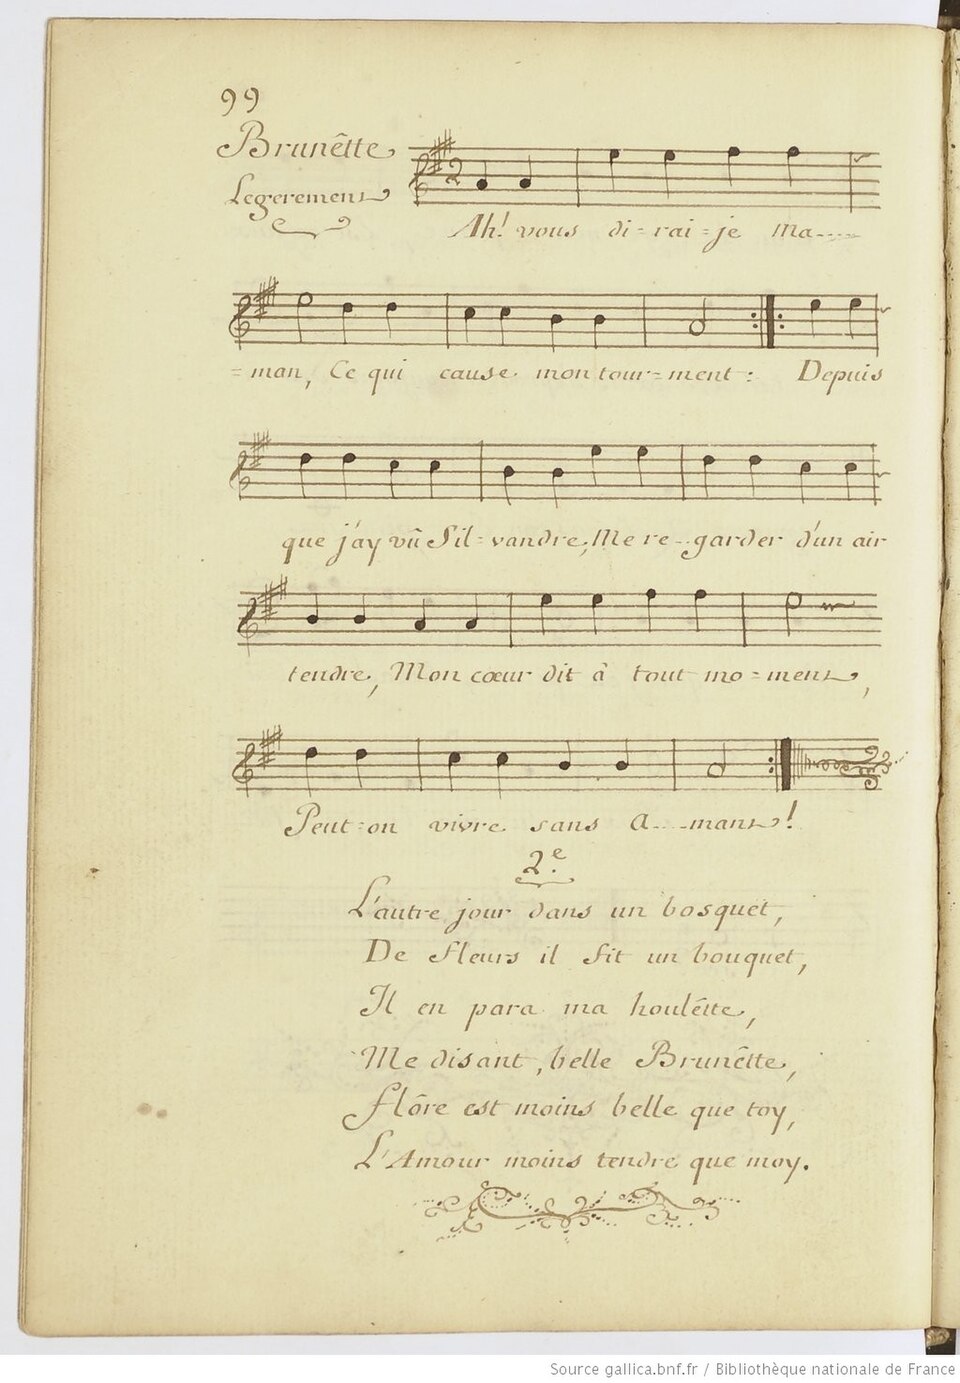 99
Brunêtte
Legerement
2
Ah! vous di=rai=je Ma----
=man, Ce qui cause mon tour=ment: Depuis
que j'ay vû Sil=vandre, Me re--garder d'un air
tendre, Mon cœur dit à tout mo=ment,
Peut=on vivre sans A----mant!
2.e
L'autre jour dans un bosquet,
De fleurs il fit un bouquet,
Il en para ma houlêtte,
Me disant, belle Brunêtte,
Flôre est moins belle que toy,
L'Amour moins tendre que moy.
Source gallica.bnf.fr / Bibliothèque nationale de France